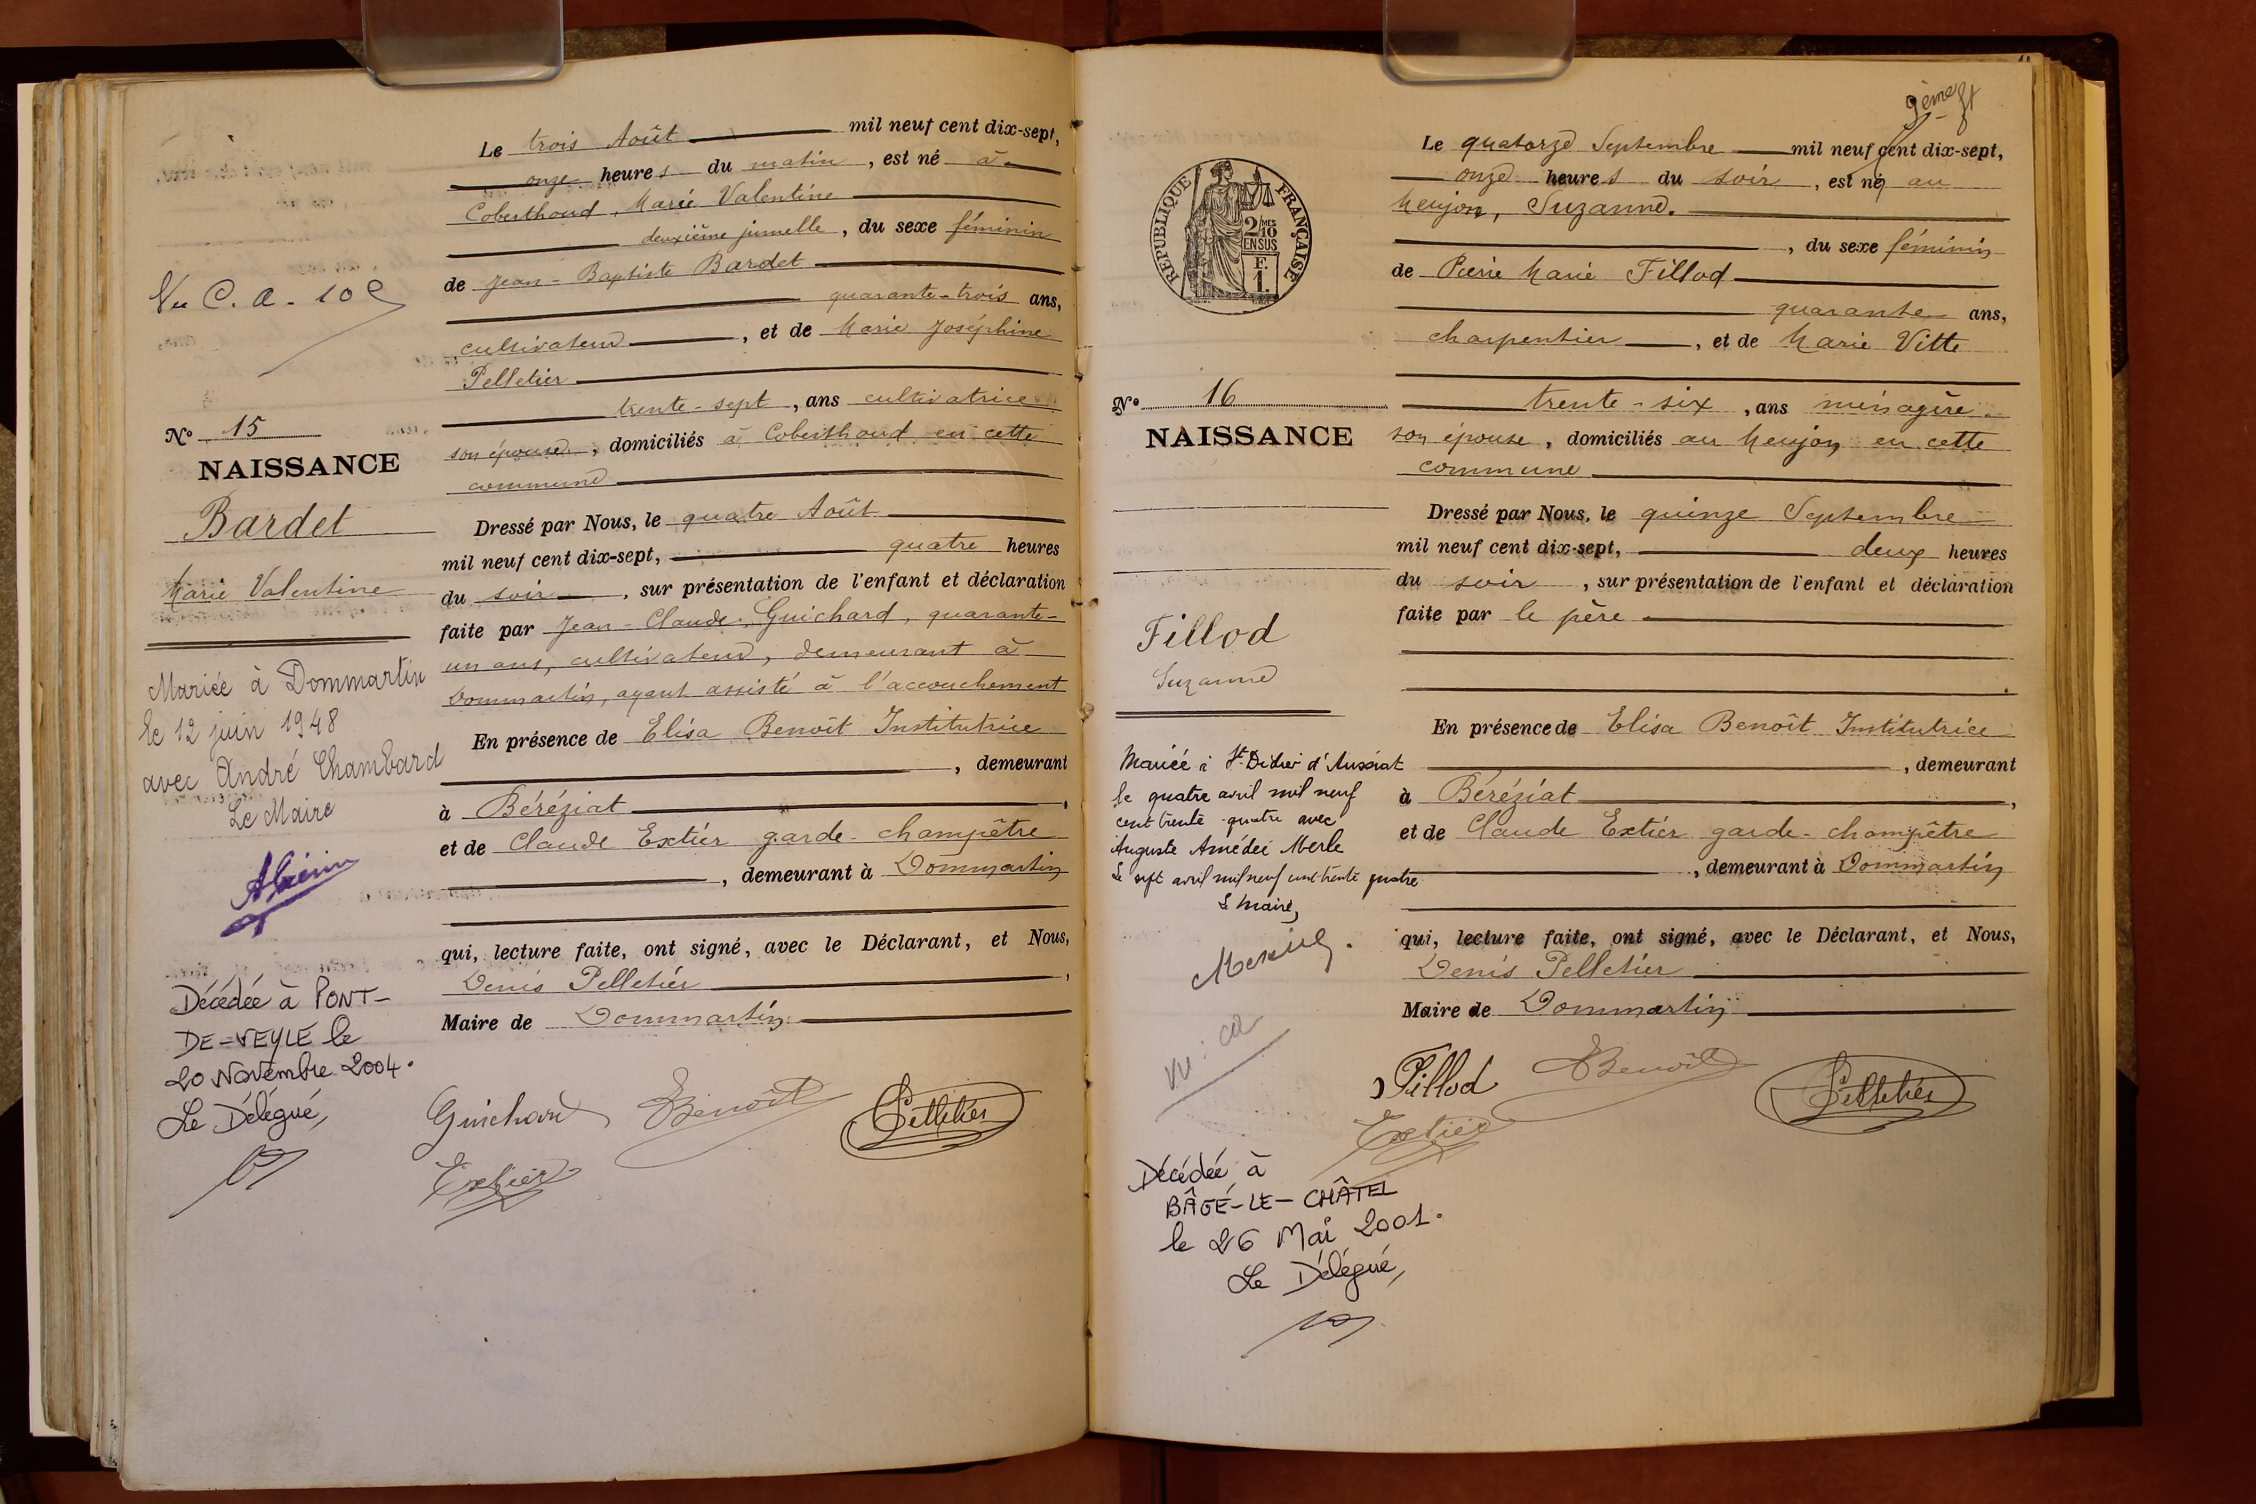 Le trois Août mil neuf cent dix-sept,
onze heures du matin, est né à
Coberthoud, Marie Valentine
deuxième jumelle, du sexe féminin
de Jean-Baptiste Bardet
quarante-trois ans,
cultivateur, et de Marie Joséphine
Pelletier
trente-sept, ans cultivatrice
son épouse, domiciliés à Coberthoud en cette
commune
Dressé par Nous, le quatre Août
mil neuf cent dix-sept, quatre heures
du soir, sur présentation de l'enfant et déclaration
faite par Jean-Claude Guichard, quarante-
un ans, cultivateur, demeurant à
Dommartin, ayant assisté à l'accouchement
En présence de Elisa Benoît Institutrice
, demeurant
à Béréziat,
et de Claude Extier garde-champêtre
, demeurant à Dommartin
qui, lecture faite, ont signé, avec le Déclarant, et Nous,
Denis Pelletier,
Maire de Dommartin
Guichard EBenoît Pelletier
Extier
Vu C.A.
No 15
NAISSANCE
Bardet
Marie Valentine
Mariée à Dommartin
le 12 juin 1948
avec André Chambard
Le Maire
Décédée à PONT-
DE-VEYLE le
20 Novembre 2004.
Le Délégué,
9ème ft
Le quatorze Septembre mil neuf cent dix-sept,
onze heures du soir, est né au
Meujon, Suzanne.
, du sexe féminin
de Pierre Marie Fillod
quarante ans,
charpentier, et de Marie Vitte
trente-six, ans ménagère
son épouse, domiciliés au Meujon en cette
commune
Dressé par Nous, le quinze Septembre
mil neuf cent dix-sept, deux heures
du soir, sur présentation de l'enfant et déclaration
faite par le père
En présence de Elisa Benoît Institutrice
, demeurant
à Béréziat,
et de Claude Extier garde-champêtre
, demeurant à Dommartin
qui, lecture faite, ont signé, avec le Déclarant, et Nous,
Denis Pelletier
Maire de Dommartin
Fillod EBenoît Pelletier
Extier
RÉPUBLIQUE FRANÇAISE
2/10 MES
EN SUS
F.
1.
No 16
NAISSANCE
Fillod
Suzanne
Mariée à St Didier d'Aussiat
le quatre avril mil neuf
cent trente-quatre avec
Auguste Amédée Merle
Le sept avril mil neuf cent trente quatre
Le Maire,
Vu: ca
Décédée à
BÂGÉ-LE-CHÂTEL
le 26 Mai 2001.
Le Délégué,